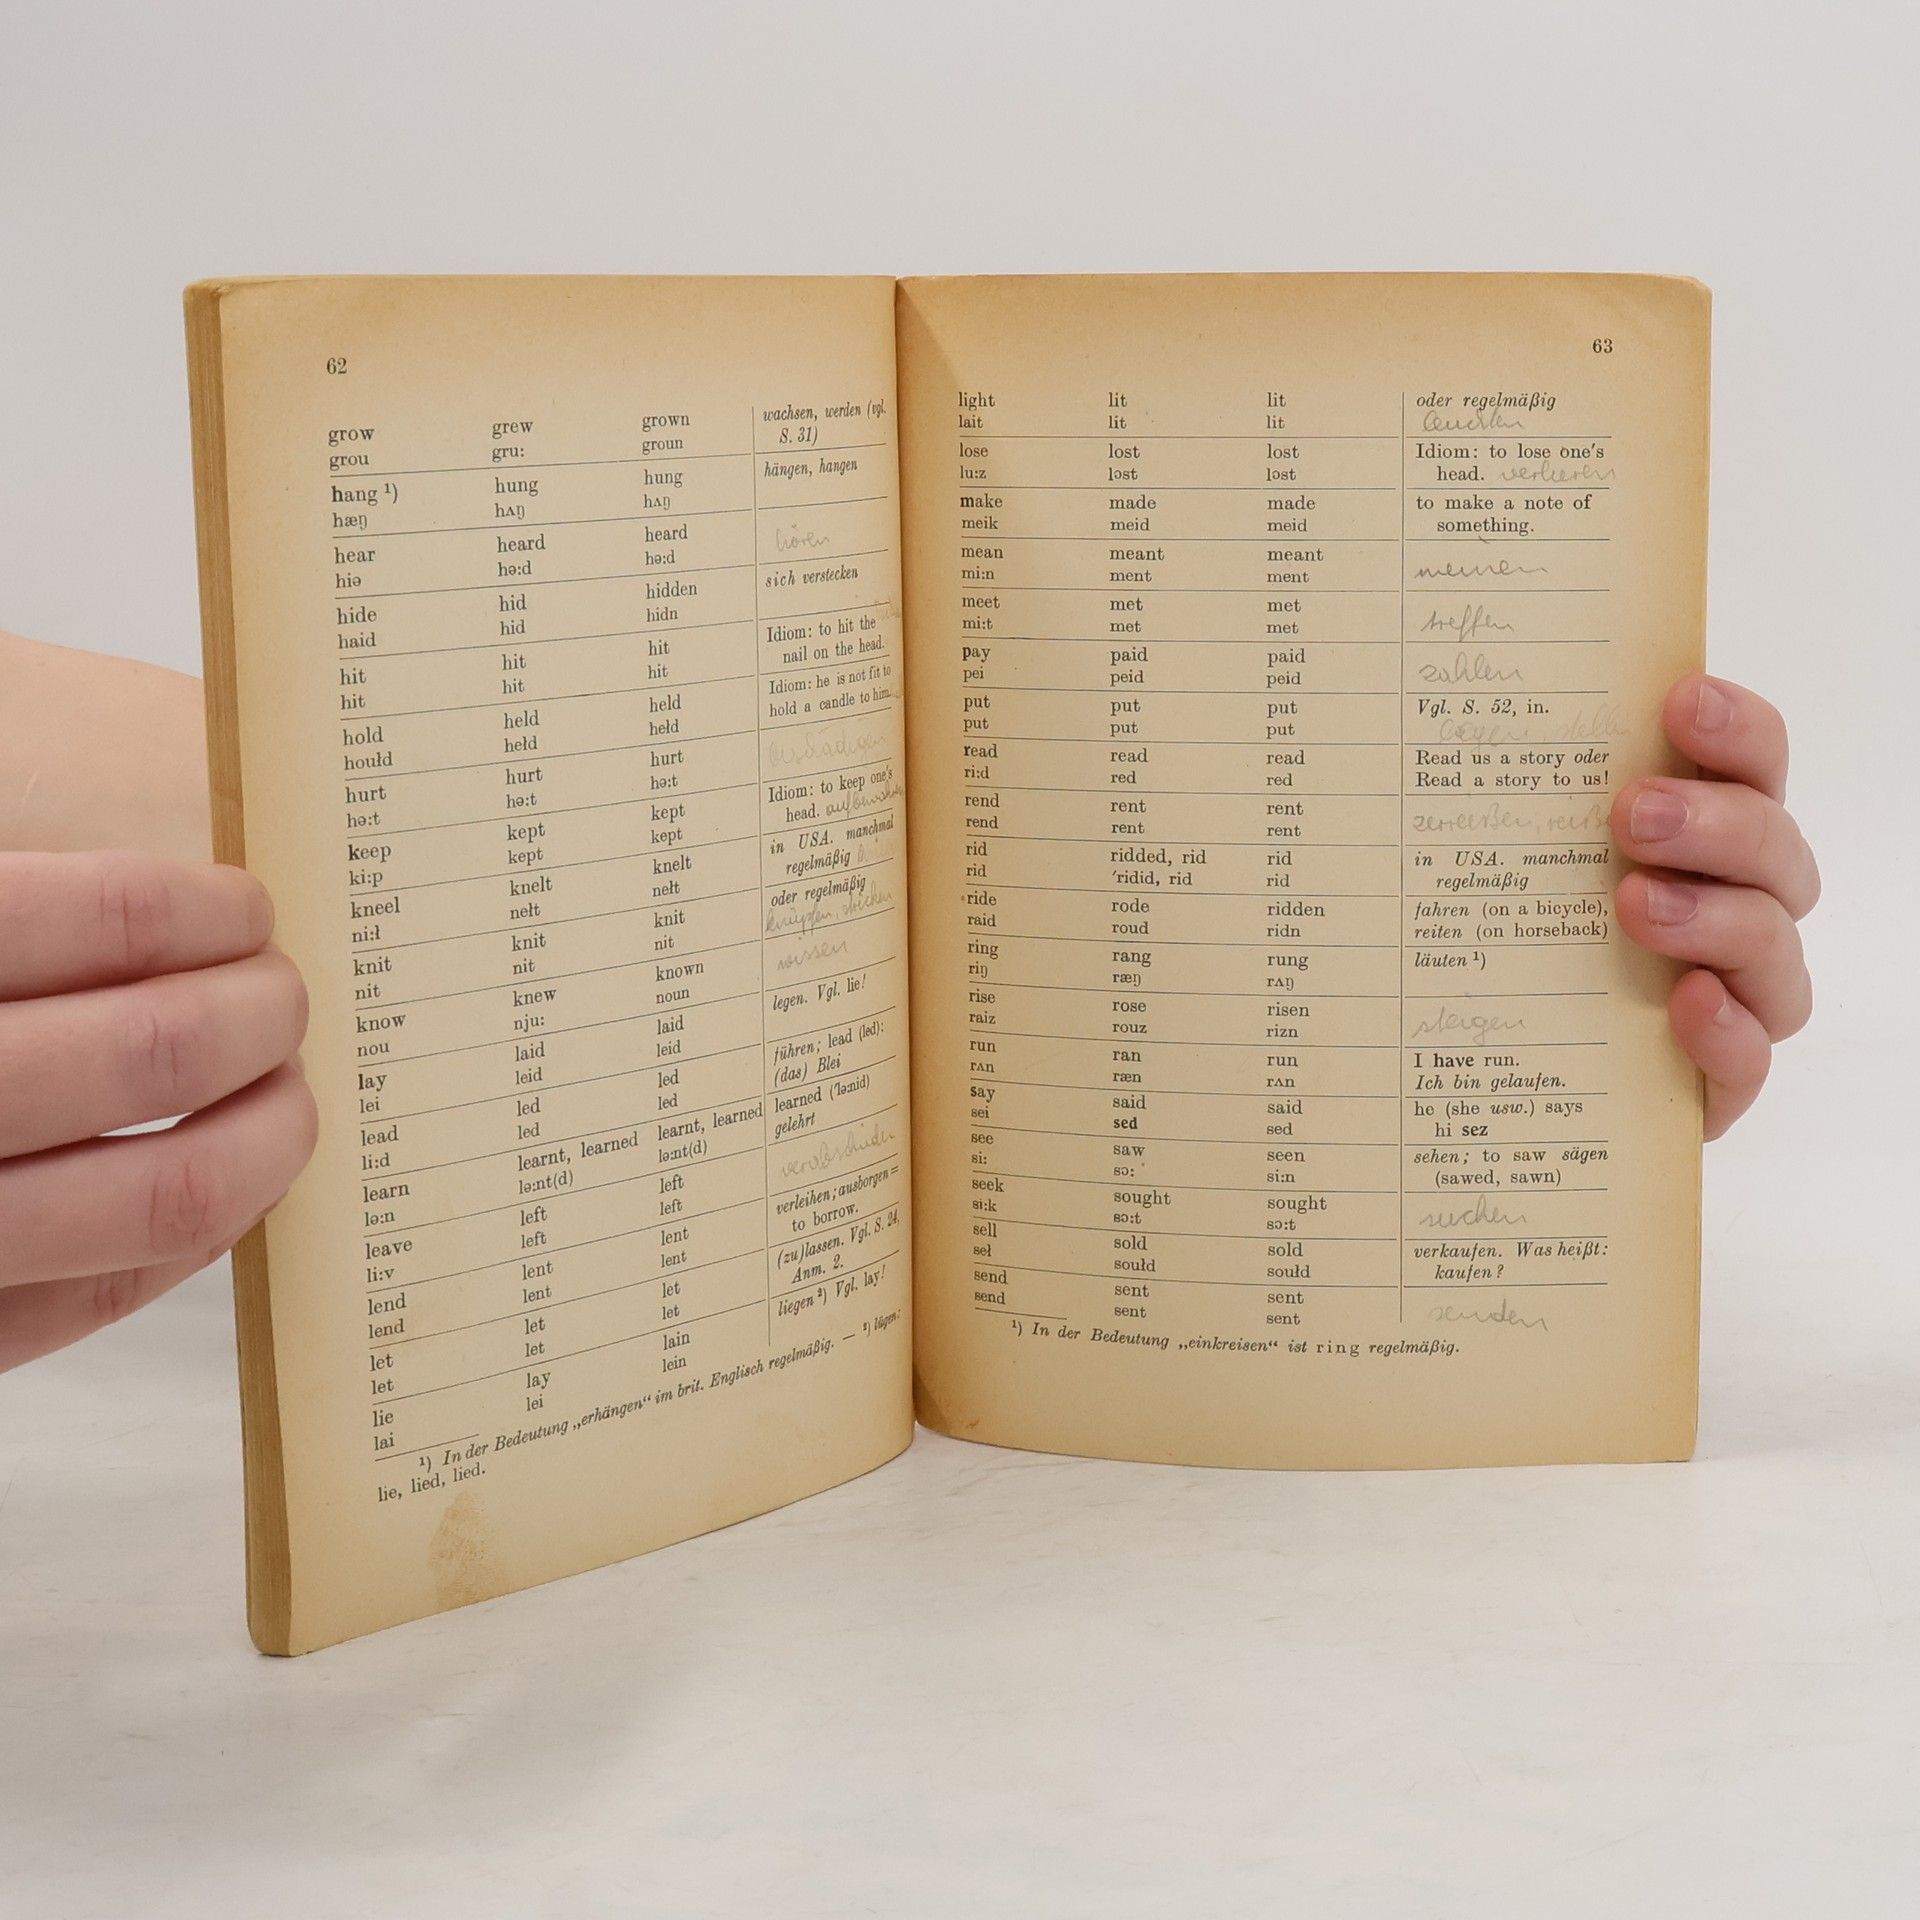 62
grow grew grown wachsen, werden (vgl.
grou gru: groun S. 31)
hang ¹) hung hung hängen, hangen
hæŋ hʌŋ hʌŋ
hear heard heard hören
hiə hə:d hə:d
hide hid hidden sich verstecken
haid hid hidn
hit hit hit Idiom: to hit the
hit hit hit nail on the head.
hold held held Idiom: he is not fit to
houłd hełd hełd hold a candle to him.
hurt hurt hurt beschädigen
hə:t hə:t hə:t
keep kept kept Idiom: to keep one's
ki:p kept kept head. aufbewahren
kneel knelt knelt in USA. manchmal
ni:ł nełt nełt regelmäßig
knit knit knit oder regelmäßig
nit nit nit knüpfen, stricken
know knew known wissen
nou nju: noun
lay laid laid legen. Vgl. lie!
lei leid leid
lead led led führen; lead (led):
li:d led led (das) Blei
learn learnt, learned learnt, learned learned ('lə:nid)
lə:n lə:nt(d) lə:nt(d) gelehrt
leave left left
li:v left left
lend lent lent verleihen; ausborgen =
lend lent lent to borrow.
let let let (zu)lassen. Vgl. S. 24,
let let let Anm. 2.
lie lay lain liegen ²) Vgl. lay!
lai lei lein
¹) In der Bedeutung „erhängen“ im brit. Englisch regelmäßig. — ²) lügen:
lie, lied, lied.
63
light lit lit oder regelmäßig
lait lit lit leuchten
lose lost lost Idiom: to lose one's
lu:z lɔst lɔst head. verlieren
make made made to make a note of
meik meid meid something.
mean meant meant meinen
mi:n ment ment
meet met met treffen
mi:t met met
pay paid paid zahlen
pei peid peid
put put put Vgl. S. 52, in.
put put put legen, stellen
read read read Read us a story oder
ri:d red red Read a story to us!
rend rent rent zerreißen,
rend rent rent
rid ridded, rid rid in USA. manchmal
rid 'ridid, rid rid regelmäßig
ride rode ridden fahren (on a bicycle),
raid roud ridn reiten (on horseback)
ring rang rung läuten ¹)
riŋ ræŋ rʌŋ
rise rose risen steigen
raiz rouz rizn
run ran run I have run.
rʌn ræn rʌn Ich bin gelaufen.
say said said he (she usw.) says
sei sed sed hi sez
see saw seen sehen; to saw sägen
si: sɔ: si:n (sawed, sawn)
seek sought sought suchen
si:k sɔ:t sɔ:t
sell sold sold verkaufen. Was heißt:
seł soułd soułd kaufen?
send sent sent senden
send sent sent
¹) In der Bedeutung „einkreisen“ ist ring regelmäßig.